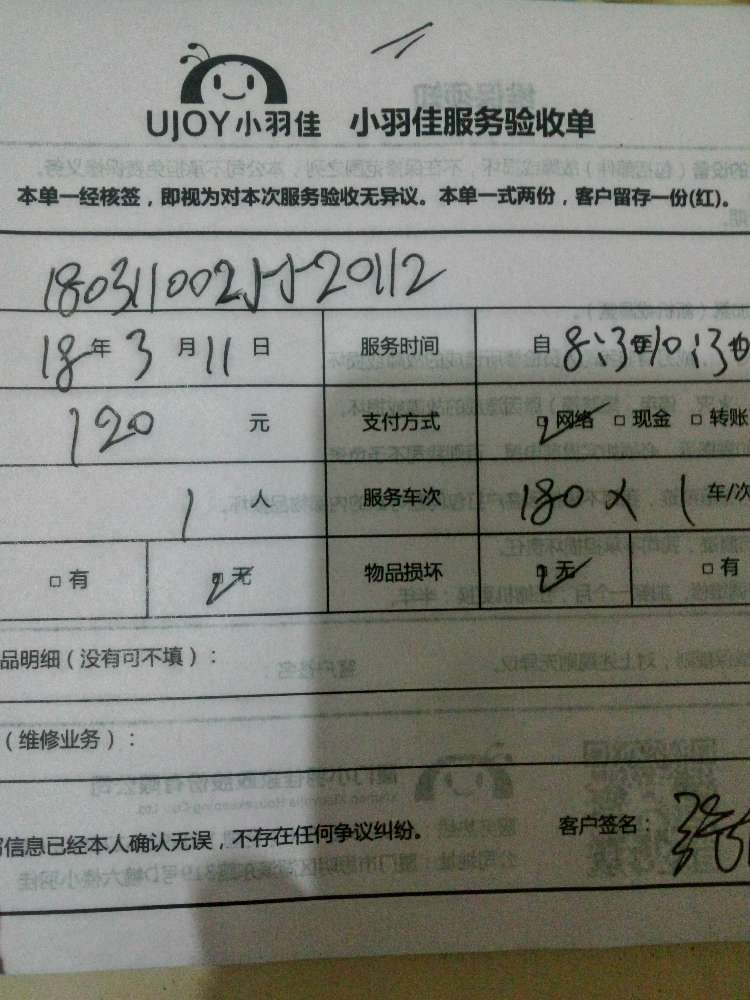 UJOY小羽佳 小羽佳服务验收单
本单一经核签，即视为对本次服务验收无异议。本单一式两份，客户留存一份(红)。
18年3月11日 服务时间 自 8:30 10:30
120 元 支付方式 ☑网络 □现金 □转账
1 人 服务车次 180 × 1 车/次
□有 ☑无 物品损坏 ☑无 □有
品明细（没有可不填）：
（维修业务）：
信息已经本人确认无误，不存在任何争议纠纷。 客户签名：